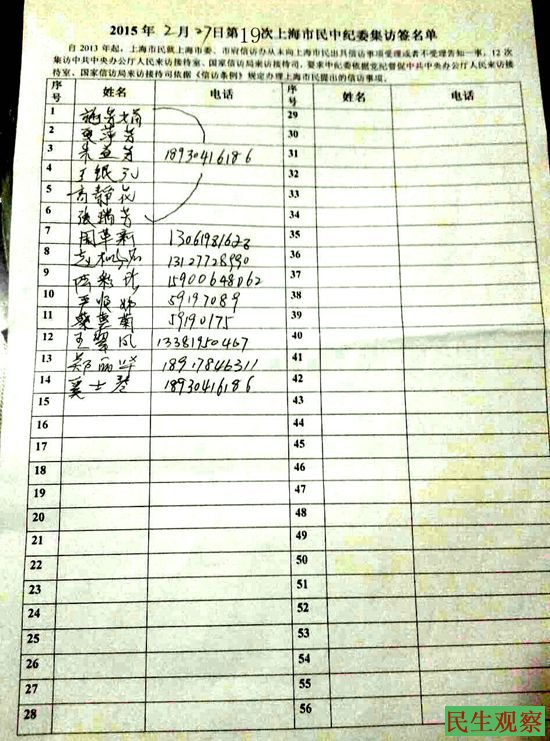 2015 年 2 月 27日第19次上海市民中纪委集访签名单
自 2013 年起，上海市民就上海市委、市府信访办从未向上海市民出具信访事项受理或者不受理告知一事，12 次
集访中共中央办公厅人民来访接待室、国家信访局来访接待司，要求中纪委依据党纪督促中共中央办公厅人民来访接
待室、国家信访局来访接待司依据《信访条例》规定办理上海市民提出的信访事项。
序号 姓名 电话 序号 姓名 电话
1 29
2 30
3 18930416186 31
4 王银 32
5 高静 33
6 张瑞芳 34
7 周革新 13061981628 35
8 13127728990 36
9 15900648062 37
10 59197089 38
11 59190175 39
12 王 凤 13381950467 40
13 郑丽华 18917846311 41
14 士琴 18930416186 42
15 43
16 44
17 45
18 46
19 47
20 48
21 49
22 50
23 51
24 52
25 53
26 54
27 55
28 56
民生观察